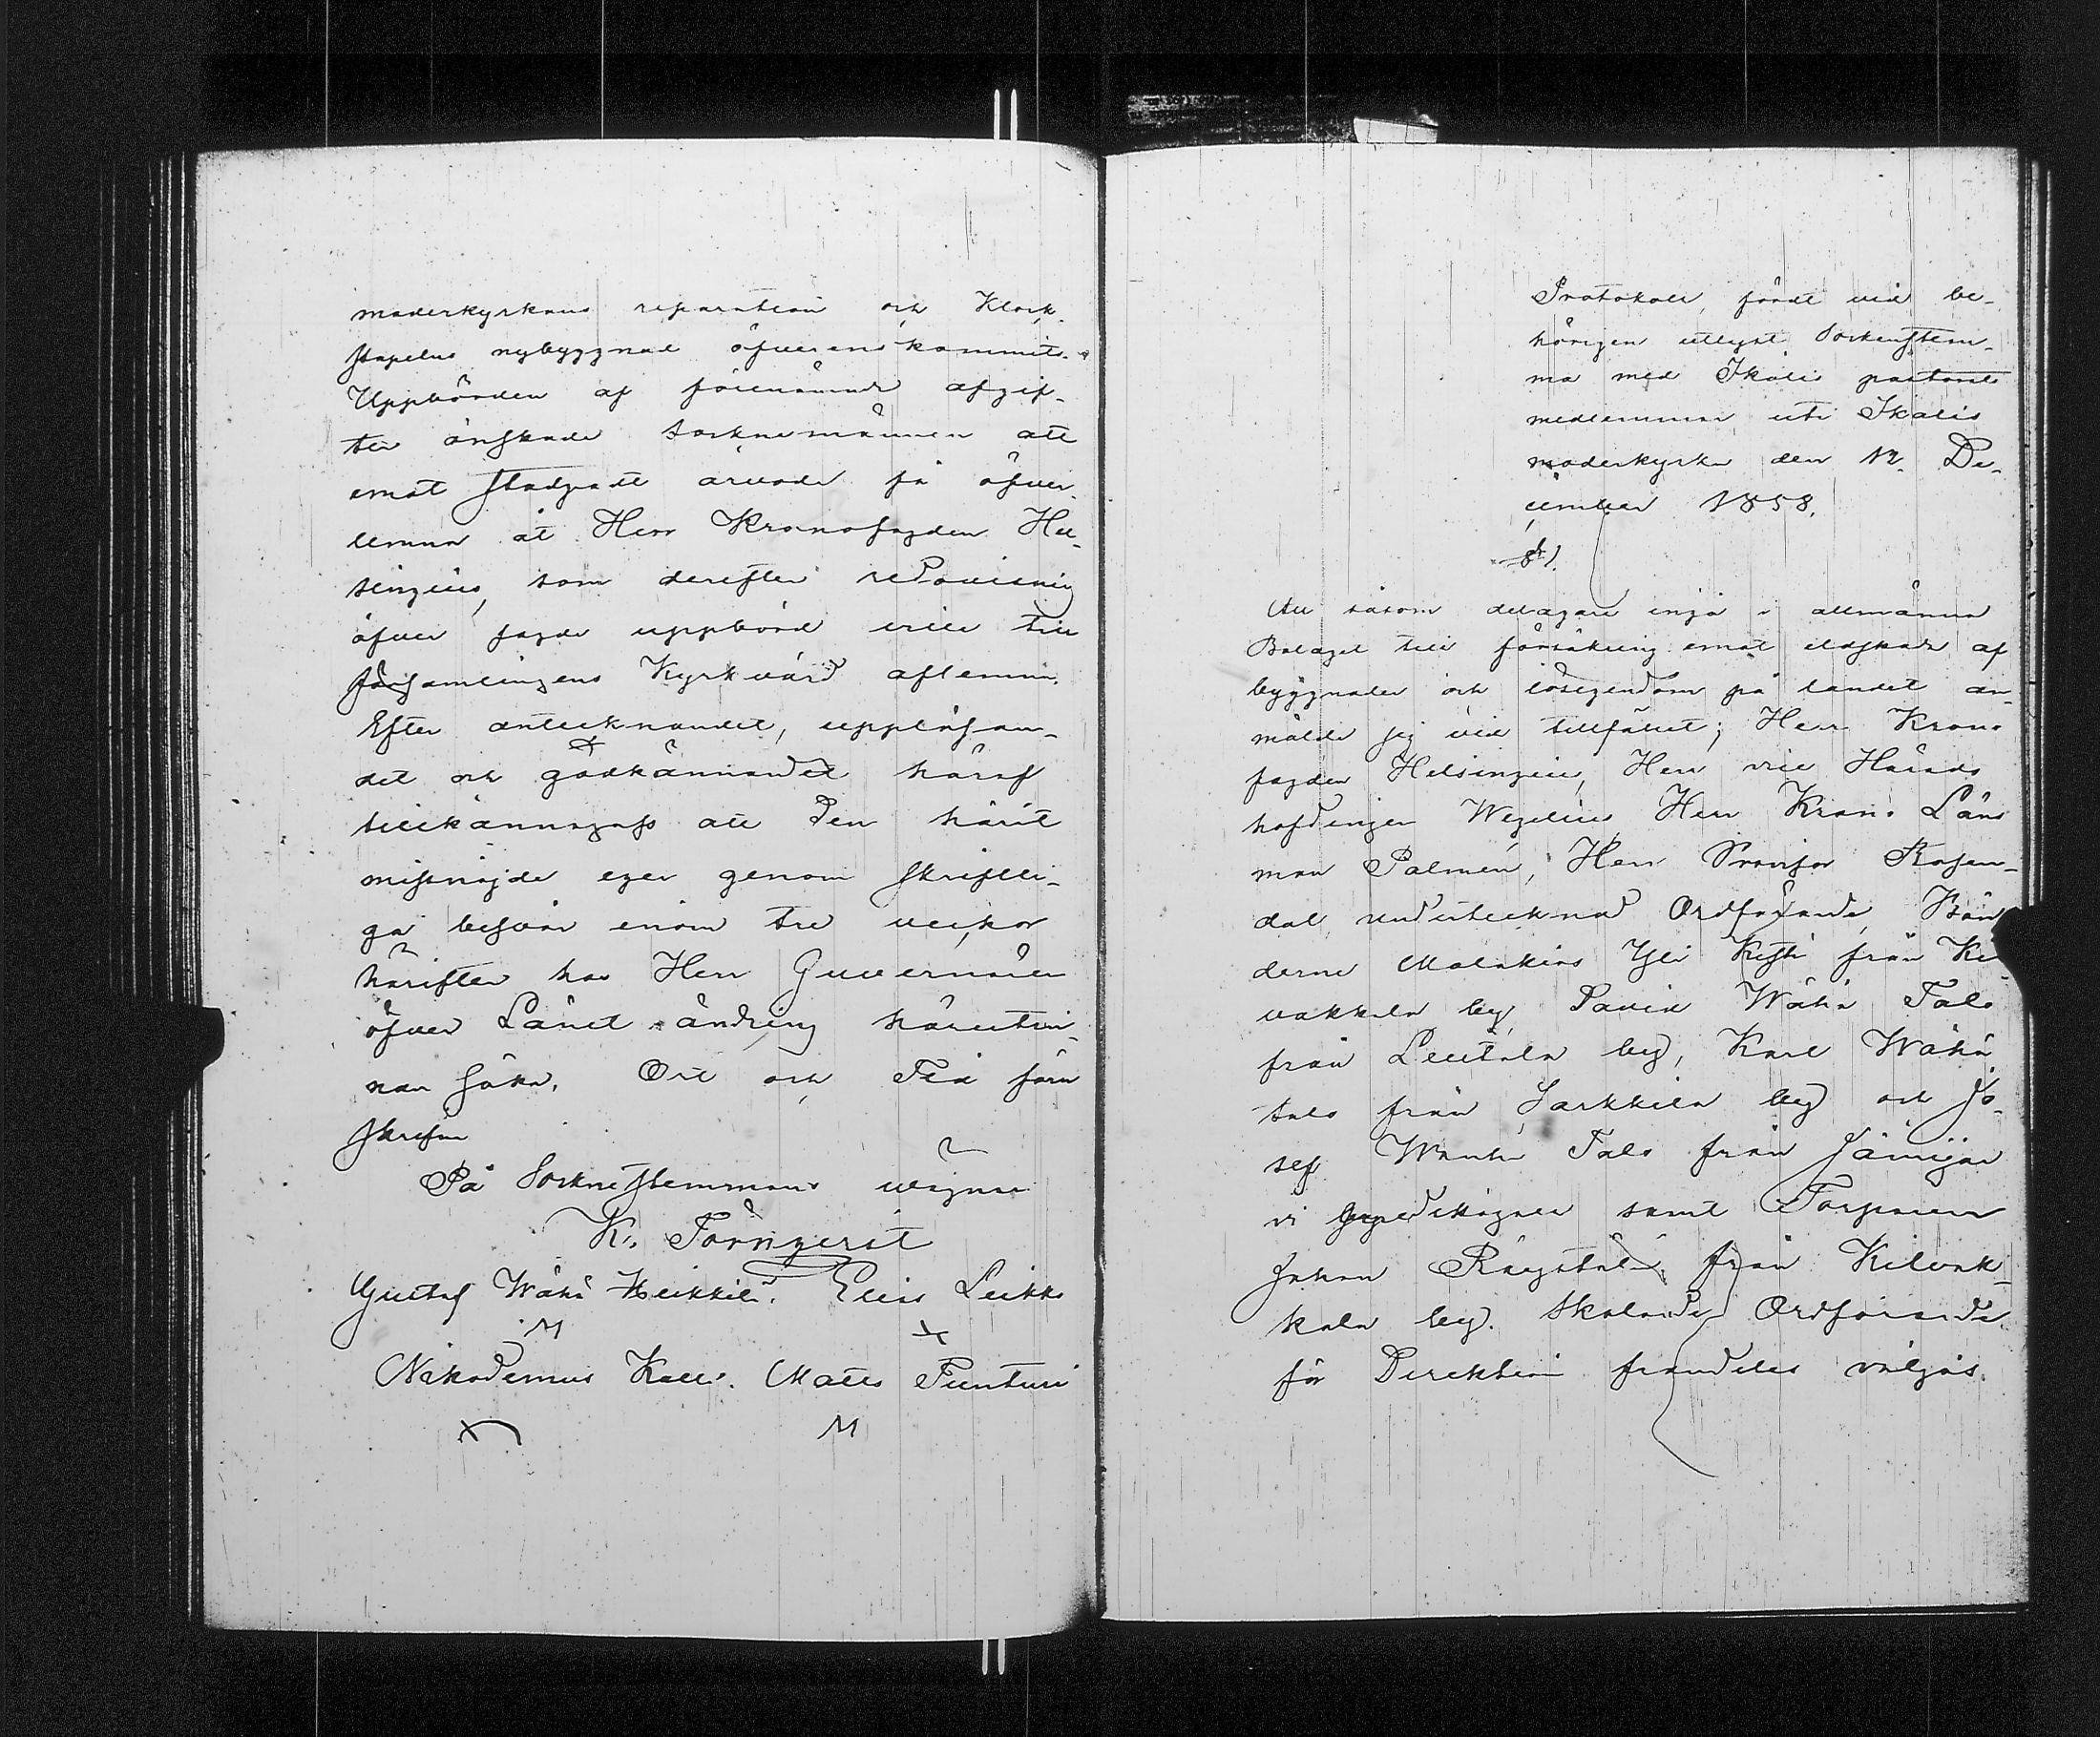 moderkyrkans reparation och Klock-
stapelns nybyggnad öfverenskommits.
Uppbörden af förenämnde afgif-
ter önskade socknemännen att
emot stadgadt arvode få öfver-
lemna åt Herr Kronofogden Hel-
singius, som derefter redovisning
öfver sagde uppbörd ville till
församlingens Kyrkvärd aflemna.
Efter antecknandet, uppläsan-
det och godkännandet häraf
tillkännagafs att den härit
missnöjde eger genom skriftli-
ga besvär inom tre veckor
härefter hos Herr Guvernören
öfver Länet ändring härutin-
nan söka. Ort och Tid som
skrefne
På Socknestemmans vägnar
K. Törnqvist
Gustaf Wähä Heikkilä. Elias Leikko
M
Nikodemus Kalli. Matts Puntusi
M
Protokoll, fördt vid be-
hörigen utlyst Sockenstem-
ma med Ikalis pastorats
medlemmar uti Ikalis
moderkyrka den 12 De-
cember 1858.
§ 1.
Att såsom delägare ingå i allmänna
Bolaget till försäkring emot eldskada af
byggnader och lösegendom på landet an-
mälde sig vid tillfället; Herr Krono
fogden Helsingius, Herr vice Härads
höfdingen Wegelius Herr Krono Läns
man Palmén, Herr Provisor Rosen-
dal, undertecknad Ordförande, Bön
derne Malakias Yli Kesti från Ki
vakkala by, David Wähä Talo
från Leutola by, Karl Wähä
talo från Sarkkila by och Jo-
sef Wanha Talo från Jämijär
vi Capellskogner samt Torparen
Johan Rägstål från Kilvak-
kala by. Skolande Ordförande
för Direktion framdeles väljas.